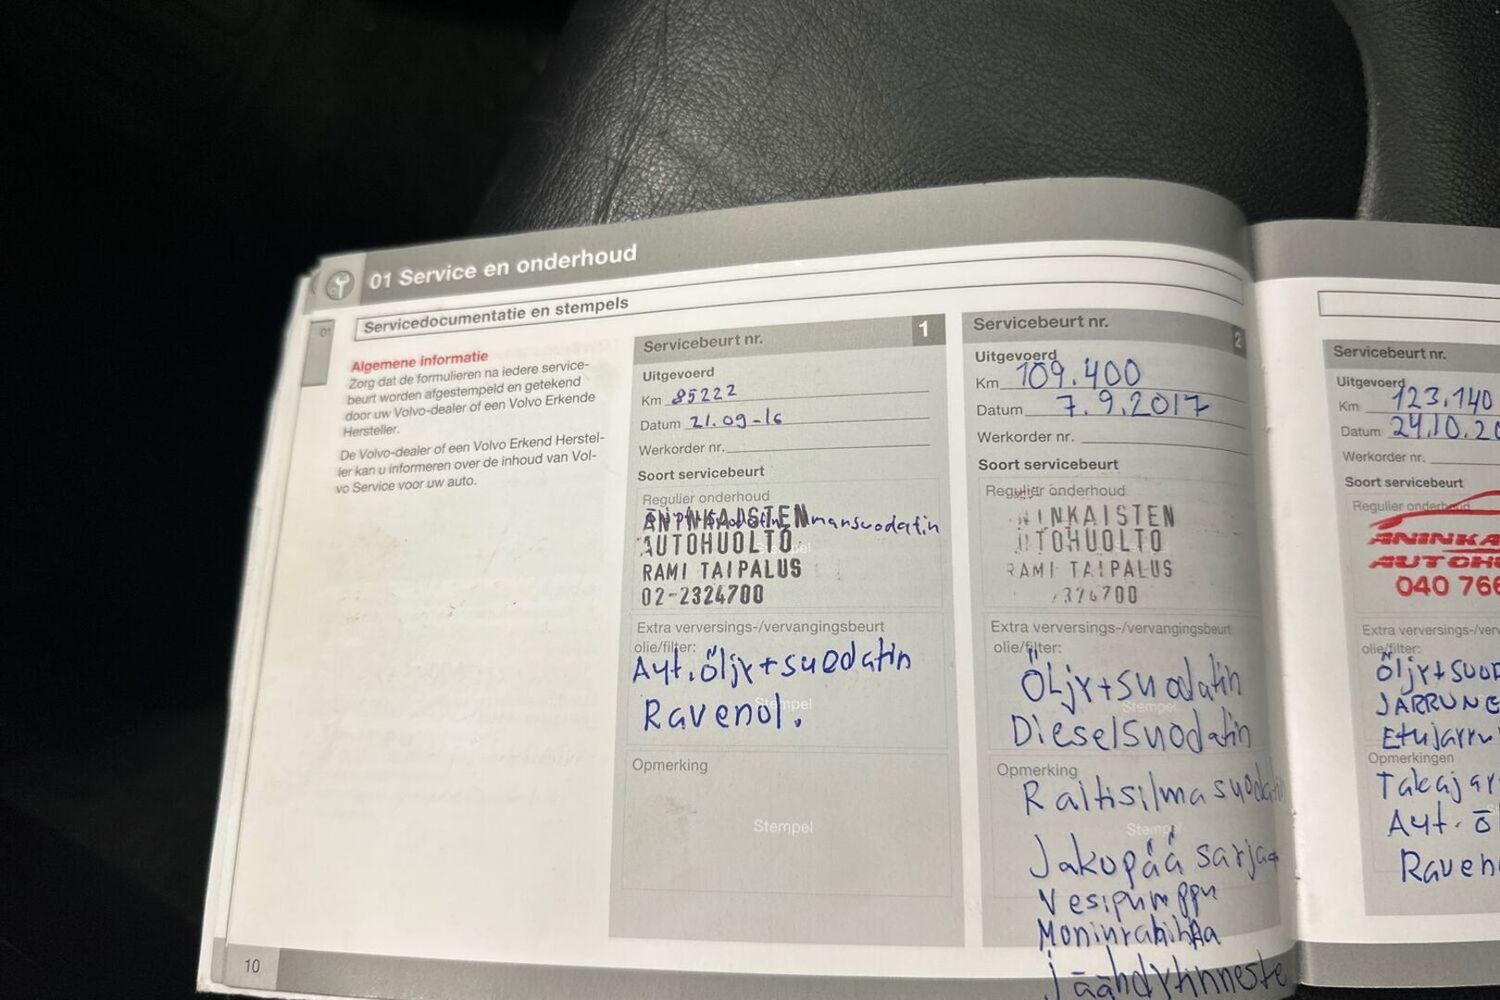 01 Service en onderhoud
01
Servicedocumentatie en stempels
Algemene informatie
Zorg dat de formulieren na iedere service-
beurt worden afgestempeld en getekend
door uw Volvo-dealer of een Volvo Erkende
Hersteller.
De Volvo-dealer of een Volvo Erkend Herstel-
ler kan u informeren over de inhoud van Vol-
vo Service voor uw auto.
10
Servicebeurt nr. 1
Uitgevoerd
Km 85222
Datum 21.09-16
Werkorder nr.
Soort servicebeurt
Regulier onderhoud
ANINKAISTEN
AUTOHUOLTO
RAMI TAIPALUS
02-2324700
Extra verversings-/vervangingsbeurt
olie/filter:
Aut.öljy+suodatin
Ravenol.
Stempel
Opmerking
Stempel
Servicebeurt nr. 2
Uitgevoerd
Km 109.400
Datum 7.9.2017
Werkorder nr.
Soort servicebeurt
Regulier onderhoud
NINKAISTEN
UTOHUOLTO
RAMI TAIPALUS
324700
Extra verversings-/vervangingsbeurt
olie/filter:
Öljy+suodatin
Stempel
Dieselsuodatin
Opmerking
Raitisilmasuodatin
Stempel
Jakopää sarja+
Vesipumppu
Moniurahihna
Jäähdytinneste
Servicebeurt nr.
Uitgevoerd
Km 123.140
Datum 24.10.20
Werkorder nr.
Soort servicebeurt
Regulier onderhoud
ANINKA
AUTOH
040 766
Extra verversings-/verv
olie/filter:
Öljy+suod
JARRUNE
Etujarru
Opmerkingen
Takajar
Aut. ö
Raven